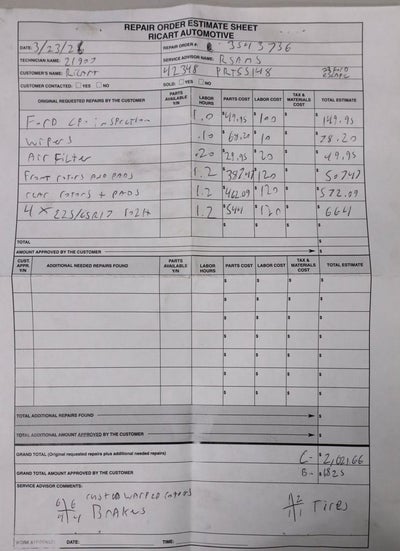 REPAIR ORDER ESTIMATE SHEET
RICART AUTOMOTIVE
DATE: 3/23/26 REPAIR ORDER #: 3543736
TECHNICIAN NAME: 21907 SERVICE ADVISOR NAME:
CUSTOMER'S NAME: Ricart 42348 PRTSS148
CUSTOMER CONTACTED: YES NO SOLD: YES NO
ORIGINAL REQUESTED REPAIRS BY THE CUSTOMER PARTS AVAILABLE Y/N LABOR HOURS PARTS COST LABOR COST TAX & MATERIALS COST TOTAL ESTIMATE
Ford CPO inspection 1.0 $49.95 $100 $149.95
wipers .10 $68.20 $10 $78.20
Air Filter .20 $29.95 $20 $49.95
Front rotors and pads 1.2 $120
rear rotors + PADS 1.2 $120 $572.09
4 x 225/65R17 102H 1.2 $544 $120 $664
TOTAL $
AMOUNT APPROVED BY THE CUSTOMER $
CUST. APPR. Y/N ADDITIONAL NEEDED REPAIRS FOUND PARTS AVAILABLE Y/N LABOR HOURS PARTS COST LABOR COST TAX & MATERIALS COST TOTAL ESTIMATE
TOTAL ADDITIONAL REPAIRS FOUND $
TOTAL ADDITIONAL AMOUNT APPROVED BY THE CUSTOMER $
GRAND TOTAL (Original requested repairs plus additional needed repairs) C-
GRAND TOTAL AMOUNT APPROVED BY THE CUSTOMER 1825
SERVICE ADVISOR COMMENTS:
rusted warped rotors
Brakes Tires
DATE: TIME: